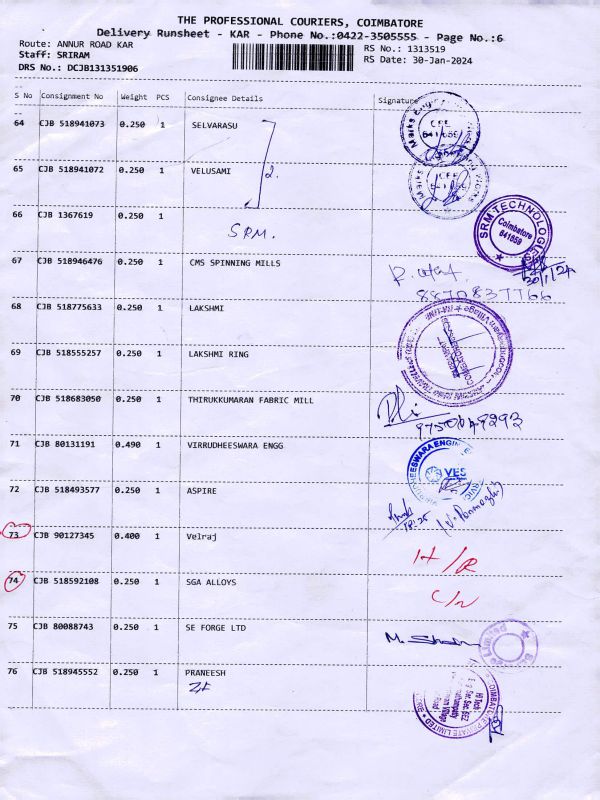 THE PROFESSIONAL COURIERS, COIMBATORE
Delivery Runsheet - KAR - Phone No.:0422-3505555 - Page No.:6
Route: ANNUR ROAD KAR
RS No.: 1313519
Staff: SRIRAM
RS Date: 30-Jan-2024
DRS No.: DCJB131351906
S No Consignment No Weight PCS Consignee Details Signature
64 CJB 518941073 0.250 1 SELVARASU
65 CJB 518941072 0.250 1 VELUSAMI
2.
66 CJB 1367619 0.250 1
SRM.
SRM TECHNOLOGIES
Coimbatore
641659
67 CJB 518946476 0.250 1 CMS SPINNING MILLS
30/1/24
8870837766
68 CJB 518775633 0.250 1 LAKSHMI
69 CJB 518555257 0.250 1 LAKSHMI RING
70 CJB 518683050 0.250 1 THIRUKKUMARAN FABRIC MILL
9750049293
71 CJB 80131191 0.490 1 VIRRUDHEESWARA ENGG
VES
72 CJB 518493577 0.250 1 ASPIRE
73 CJB 90127345 0.400 1 Velraj
74 CJB 518592108 0.250 1 SGA ALLOYS
75 CJB 80088743 0.250 1 SE FORGE LTD
76 CJB 518945552 0.250 1 PRANEESH